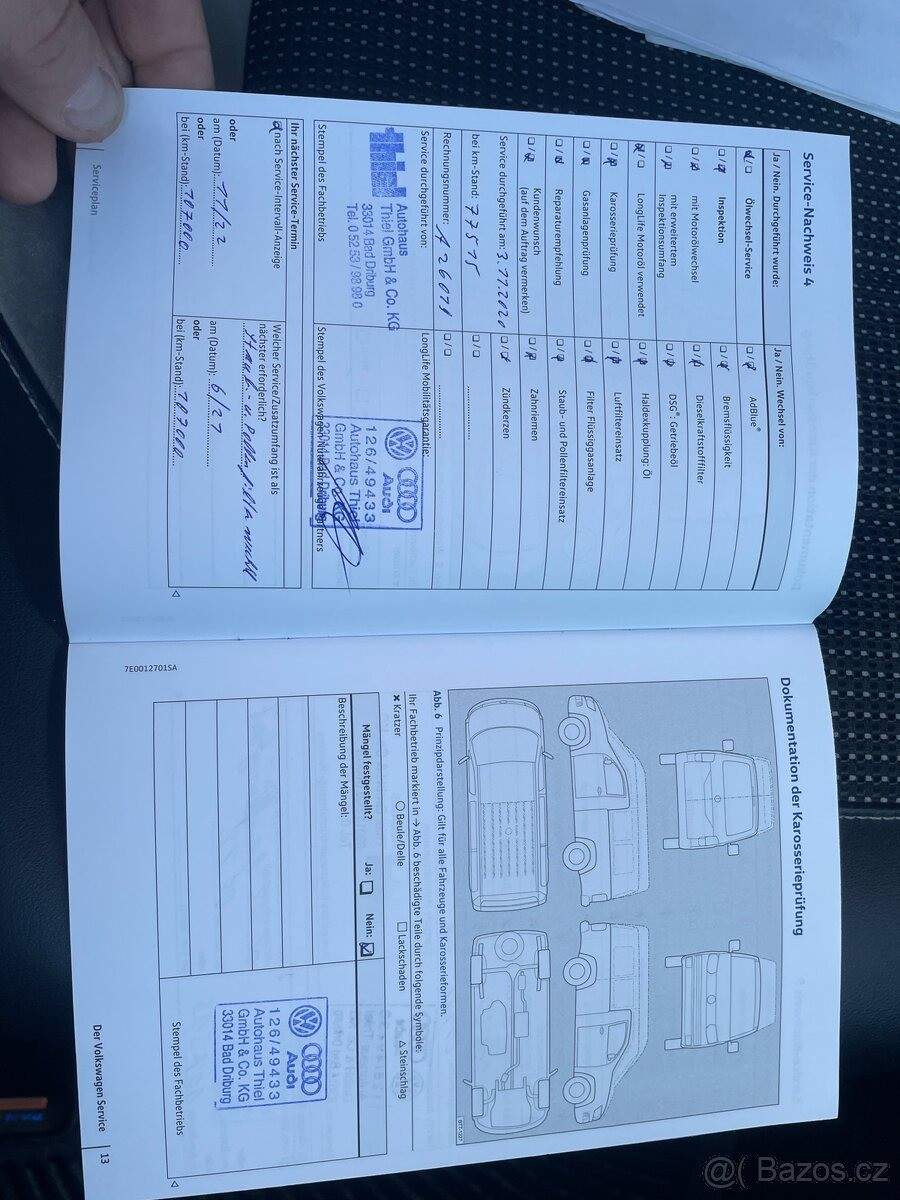 Service-Nachweis 4
Ja / Nein. Durchgeführt wurde:
Ölwechsel-Service
Inspektion
mit Motorölwechsel
mit erweitertem
Inspektionsumfang
LongLife Motoröl verwendet
Karosserieprüfung
Gasanlagenprüfung
Reparaturempfehlung
Kundenwunsch
(auf dem Auftrag vermerken)
Service durchgeführt am: 3.11.2020
bei km-Stand: 77575
Rechnungsnummer: A 26071
Service durchgeführt von:
Autohaus
Thiel GmbH & Co. KG
33014 Bad Driburg
Tel. 0 52 53 / 98 98 0
Stempel des Fachbetriebs
Ja / Nein. Wechsel von:
AdBlue®
Bremsflüssigkeit
Dieselkraftstofffilter
DSG®: Getriebeöl
Haldexkupplung: Öl
Luftfiltereinsatz
Filter Flüssiggasanlage
Staub- und Pollenfiltereinsatz
Zahnriemen
Zündkerzen
LongLife Mobilitätsgarantie:
Audi
126/49433
Autohaus Thiel
GmbH & Co. KG
33014 Bad Driburg
Stempel des Volkswagen Nutzfahrzeuge Partners
Ihr nächster Service-Termin
nach Service-Intervall-Anzeige
oder
am (Datum): 11/22
oder
bei (km-Stand): 107000
Welcher Service/Zusatzumfang ist als
nächster erforderlich?
am (Datum): 6/21
oder
bei (km-Stand): 107000
Serviceplan
7E0012701SA
Dokumentation der Karosserieprüfung
BTT-1027
Abb. 6 Prinzipdarstellung: Gilt für alle Fahrzeuge und Karosserieformen.
Ihr Fachbetrieb markiert in → Abb. 6 beschädigte Teile durch folgende Symbole:
✖ Kratzer ○ Beule/Delle □ Lackschaden △ Steinschlag
Mängel festgestellt? Ja: Nein:
Beschreibung der Mängel:
Audi
126/49433
Autohaus Thiel
GmbH & Co. KG
33014 Bad Driburg
Stempel des Fachbetriebs
Der Volkswagen Service 13
Bazos.cz